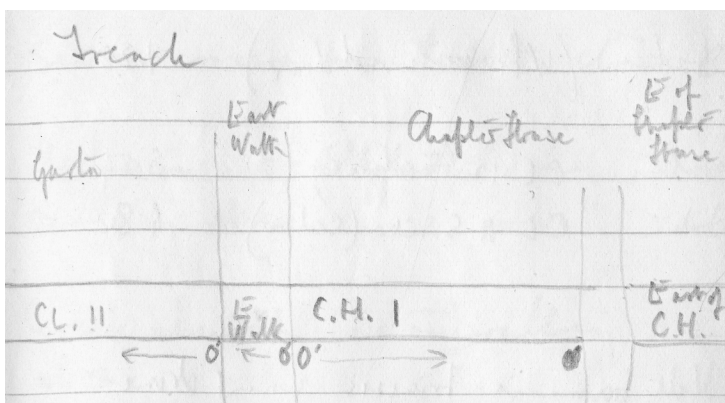 Trench
East
Walk
Garth
Chapter House
E of
Chapter
House
CL. II
E
Walk
C.H. I
East of
C.H.
0' 0' 0'